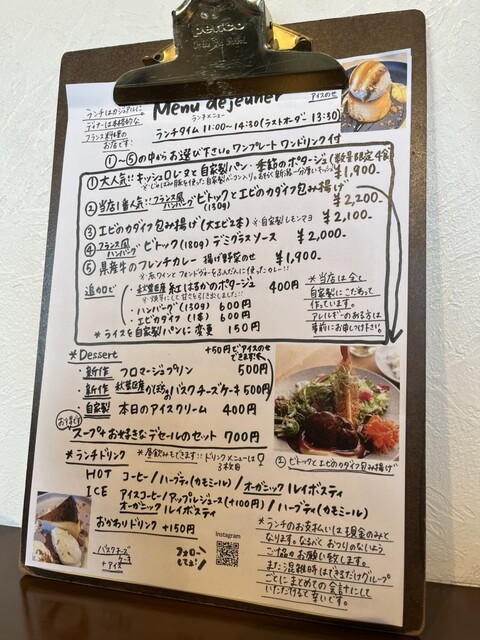 penco
ランチはカジュアルに
ディナーは本格的な
フランス料理の
お店です!
Menu déjeuner
ランチメニュー
アイスのせ
ランチタイム 11:00〜14:30 (ラストオーダー 13:30)
①〜⑤の中からお選び下さい。ワンプレート ワンドリンク付
① 大人気!! キッシュロレーヌと自家製パン・季節のポタージュ (数量限定
¥1,900-
② 当店1番人気!! フランス風ハンバーグ ビトックとエビのカダイフ包み揚げ
(130g) ¥2,200-
③ エビのカダイフ包み揚げ (大エビ2本) ※自家製レモンマヨ ¥2,100-
④ フランス風ハンバーグ ビトック (180g) デミグラスソース ¥2,000-
⑤ 県産牛のフレンチカレー 揚げ野菜のせ ¥1,900-
※赤ワインとフォンドヴォーをふんだんに使ったカレー!!
追加ロビ
・秋葉区産 紅はるかのポタージュ 400円
・ハンバーグ (130g) 600円
・エビカダイフ (1本) 600円
※ライスを自家製パンに変更 150円
※当店は全て
自家製にこだわって
作っています。
アレルギーのある方は
事前にお申し付け下さい。
*Dessert
+50円でアイスのせ
できます
・新作 フロマージュプリン 500円
・新作 秋葉区産かぼちゃのバスクチーズケーキ 500円
・自家製 本日のアイスクリーム 400円
お得です
スープ&お好きなデセールのセット 700円
*ランチドリンク
※昼飲みもできます!! ドリンクメニューは
3枚目
HOT コーヒー/ハーブティ(カモミール)/オーガニックルイボスティ
ICE アイスコーヒー/アップルジュース(+100円)/ハーブティ(カモミール)
オーガニックルイボスティ
おかわりドリンク +150円
② ビトックとエビのカダイフ包み揚げ
バスクチーズ
ケーキ
+アイス
フォロー
してネ!
Instagram
*ランチのお支払いは現金のみと
なります。なるべくおつりのないよう
ご協力お願い致します。
また混雑時はできるだけグループ
ごとにまとめての会計にして
いただけると幸いです。